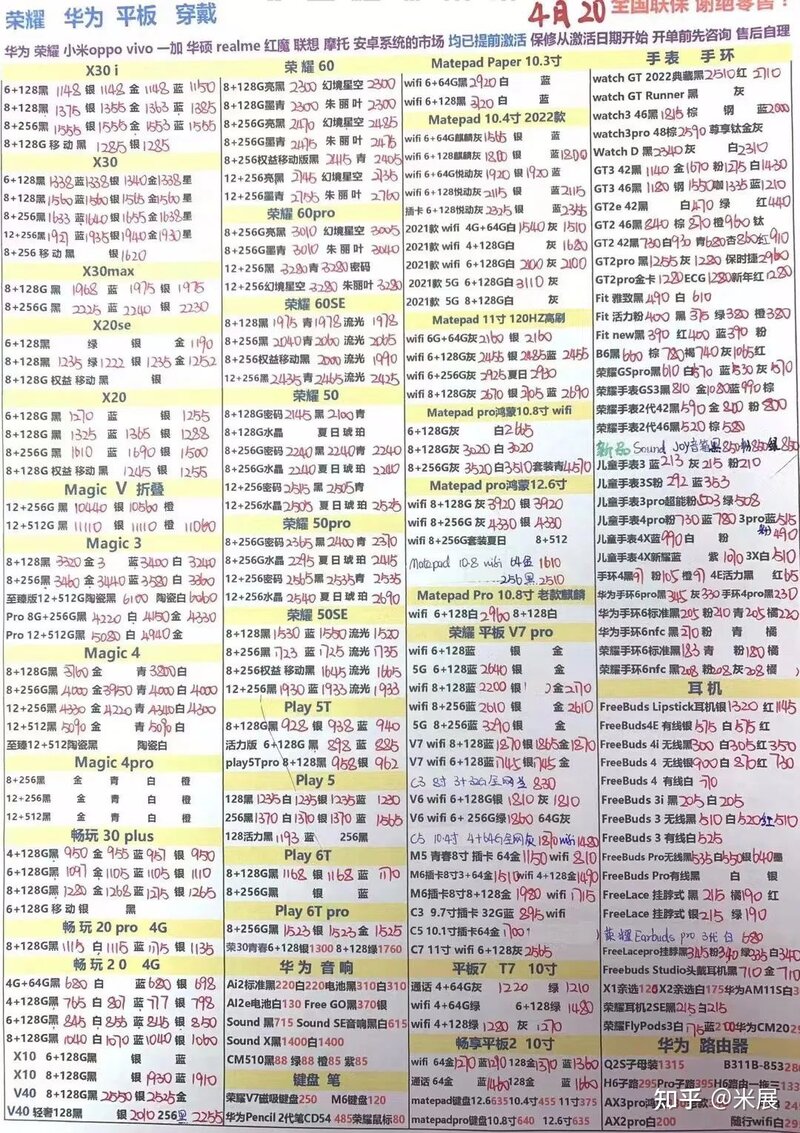 荣耀 华为 平板 穿戴
4月20 全国联保 谢绝零售!
华为 荣耀 小米oppo vivo 一加 华硕 realme 红魔 联想 摩托 安卓系统的市场 均已提前激活 保修从激活日期开始 开单前先咨询 售后自理
X30 i
6+128黑 1148 银 1148 金 1148 蓝 1150
8+128G黑 1375 银 1355 金 1363 蓝 1385
8+256G黑 1555 银 1555 金 1553 蓝 1555
8+128G 移动 黑 1285 银 1285
X30
6+128黑 1338 蓝 1338 银 1340 金 1338 星
8+128黑 1560 蓝 1560 银 1565 金 1560 星
8+256黑 1633 蓝 1640 银 1655 金 1638 星
12+256黑 1921 蓝 1935 银 1940 金 1930 星
8+256 移动 黑 银 1620
X30max
8+128G 黑 1968 蓝 1975 银 1975
8+256G 黑 2225 蓝 2240 银 2230
X20se
6+128黑 绿 银 金 1190
8+128黑 1235 绿 1222 银 1235 金 1252
8+128G 权益 移动 黑 银
X20
6+128G 黑 1270 蓝 银 1255
8+128G 黑 1325 蓝 1365 银 1288
8+256G 黑 1610 蓝 1690 银 1500
8+128G 权益移动 黑 1245 银 1255
Magic V 折叠
12+256G 黑 10440 银 10560 橙
12+512G 黑 11110 银 11110 橙 11060
Magic 3
8+128G 黑 3320 金 3 蓝 3400 白 3240
8+256G 黑 3460 金 3440 蓝 3580 白 3360
至臻版12+512G陶瓷黑 6100 陶瓷白 6060
Pro 8G+256G黑 4220 白 4150 金 4330
Pro 12+512G黑 5080 白 4940 金
Magic 4
8+128G黑 3760 金 青 3800 白
8+256G黑 4000 金 3950 青 4000 白 4000
12+256黑 4330 金 4220 青 4340 白 4300
12+512黑 5090 金 青 5090 白
至臻12+512陶瓷黑 陶瓷白
Magic 4pro
8+256黑 金 青 白 橙
12+256黑 金 青 白 橙
12+512黑 金 青 白 橙
畅玩 30 plus
4+128G黑 950 金 955 蓝 957 银 950
6+128G黑 1097 金 1105 蓝 1105 银 1110
8+128G黑 1280 金 1268 蓝 1275 银 1265
6+128G 移动 银 黑
畅玩 20 pro 4G
8+128G黑 1115 白 1115 蓝 1175 银 1135
畅玩 2 0 4G
4G+64G黑 680 白 蓝 680 银 698
4+128G黑 765 白 807 蓝 777 银 798
6+128G黑 845 白 855 蓝 845 银 850
8+128G黑 1040 白 1070 蓝 1040 银 1060
X10 6+128G黑 银 蓝
X10 8+128G黑 银 1930 蓝 1910
V40 8+128G黑 2550 银 2525 金
V40 轻奢128黑 银 2010 256黑 2255
荣 耀 60
8+128G亮黑 2300 幻境星空 2300
8+128G墨青 2300 朱丽叶 2300
8+256G亮黑 2470 幻境星空 2485
8+256G墨青 2475 朱丽叶 2475
8+256权益移动版黑 2415 青 2405
12+256亮黑 2745 幻境星空 2735
12+256墨青 2755 朱丽叶 2760
荣耀 60pro
8+256G亮黑 3010 幻境星空 3005
8+256G墨青 3010 朱丽叶 3040
12+256黑 3280 青 3280 密码
12+256幻境星空 3280 朱丽叶 3280
荣耀 60SE
8+128黑 1975 青 1978 流光 1978
8+256黑 2040 青 2060 流光 2065
8+256权益移动黑 2000 流光 1990
12+256黑 2435 青 2465 流光 2425
荣耀 50
8+128G密码 2145 黑 2100 青
8+128G水晶 夏日琥珀
8+256G密码 2240 黑 2240 青 2240
8+256G水晶 2240 夏日琥珀 2240
12+256密码 2515 黑 2505 青
12+256水晶 2505 夏日琥珀 2525
荣耀 50pro
8+256G密码 2365 黑 2400 青 2370
8+256G水晶 2295 夏日琥珀 2415
12+256密码 2565 黑 2535 青 2535
12+256水晶 2540 夏日琥珀 2690
荣耀 50SE
8+128黑 1530 蓝 1550 流光 1520
8+256黑 1723 蓝 1725 流光 1735
8+256权益 移动黑 1645 流光 1665
12+256黑 1930 蓝 1933 流光 1933
Play 5T
8+128G黑 928 银 938 蓝 940
活力版 6+128G黑 898 蓝 885
play5Tpro 8+128黑 958 银 962
Play 5
128黑 1235 白 1235 银 1235 蓝 1230
256黑 1370 白 1370 银 1370 蓝 1565
128活力黑 1193 蓝 256黑
Play 6T
8+128G黑 1168 银 1168 蓝 1170
8+256G黑 银 蓝
Play 6T pro
8+256G黑 1523 银 1523 蓝 1525
荣30青春6+128银1300 8+128绿1760
华 为 音 响
Ai2标准版220白220电池黑310白310
AI2e电池白130 Free GO黑370银
Sound 黑715 Sound SE音响黑白615
Sound X黑1400白1400
CM510黑88 绿88 橙85 紫85
键盘 笔
荣耀V7磁吸键盘250 M6键盘120
华为Pencil 2代笔CD54 485荣耀鼠标80
Matepad Paper 10.3寸
wifi 6+64G黑 2920 白 蓝
wifi 6+128黑 3120 白 蓝
Matepad 10.4寸 2022款
wifi 6+64G麒麟灰 1565 银 蓝
wifi 6+128麒麟灰 1800 银 蓝 1800
wifi 6+64G悦动灰 1920 银 1920 蓝
wifi 6+128悦动灰 2115 银 蓝 2115
插卡 6+128悦动灰 2325 银 蓝 2355
2021款 wifi 4G+64G白 1540 灰 1510
2021款 wifi 4+128G白 灰 1680
2021款 wifi 6+128G白 2100 灰 2100
2021款 5G 6+128G白 3110 灰
2021款 5G 8+128G白 灰
Matepad 11寸 120HZ高刷
wifi 6G+64G灰 2160 银 2160
wifi 6+128G灰 2455 银 2485 蓝 2455
wifi 6+256G灰 2925 夏日 2930
wifi 8+256G灰 2670 银 2705 蓝 2690
Matepad pro鸿蒙10.8寸 wifi
6+128G灰 白 2665
8+128G灰 3020 白 3020
8+256G灰 3520 白 3510 套装青 4570
Matepad pro鸿蒙12.6寸
wifi 8+128G 灰 3920 银 3920
wifi 8+256G 灰 4330 银 4330
wifi 8+256G套装夏日 8+512
Matepad 10.8 wifi 64金 1610
256黑 2510
Matepad Pro 10.8寸 老款麒麟
wifi 6+128白 2960 8+128白
荣耀 平板 V7 pro
wifi 6+128蓝 银 金
5G 6+128蓝 2640 银 金
wifi 8+128蓝 2200 银 金 2170
wifi 8+256蓝 2610 银 金 2610
5G 8+256蓝 3290 银 金
V7 wifi 8+128蓝 1870 银 1865 金 1870
V7 wifi 6+128蓝 1745 银 1745 金
C3 8寸 3+32G全网 830
V6 wifi 6+128G银 1810 灰 1810
V6 wifi 6+ 256G绿 1860 64G灰
C5 10.4寸 4+64G全网 灰 1870 wifi 1480
M5 青春8寸 插卡 64金 1150 wifi 810
M6插卡8寸3+64金 1510 wifi 4+128金 1490
M6插卡8寸8+128金 1980 wifi 1715
C3 9.7寸插卡 32G蓝 895 wifi
C5 10.1寸插卡64金 1700
C7 11寸 wifi 6+128灰 2565
平板7 T7 10寸
通话 4+64G灰 1220 绿 1210
wifi 4+64G绿 6+128金 1480
wifi 4+128 绿 1280 灰 1270
畅享平板2 10寸
wifi 64金 1270 蓝 1270 128金 1370 蓝 1360
通话 64金 蓝 1460 128金 蓝 1660
matepad键盘12.6 635 10.4寸 455 11寸 375
matepadpro键盘10.8寸 640 12.6寸 635
手表 手环
watch GT 2022典藏黑 2510 红 2710
watch GT Runner 黑 灰
watch3 46黑 1815 棕 钢 蓝 2000
watch3pro 48棕 2590 尊享钛金灰
Watch D 黑 2340 灰 白 2310
GT3 42黑 1140 金 1670 粉 1275 白 1430
GT3 46黑 1180 钢 1550 咖 1335 蓝 1210
GT2e 42黑 白 470 绿 红 440
GT2 46黑 840 棕 870 橙 960 钛
GT2 42黑 730 白 930 青 680 杏 860 红 910
GT2pro 黑 1255 灰 1280 保时捷 2960
GT2pro金卡 1280 ECG 1280 新年红 1280
Fit 雅致黑 490 白 610
Fit 活力粉 400 黑 375 绿 380 橙 380
Fit new黑 390 红 400 蓝 390 粉
B6黑 660 棕 780 褐 740 灰 1065 红
荣耀GSpro黑 610 白 570 蓝 530 灰 570
荣耀手表GS3黑 810 金 1080 蓝 990 棕
荣耀手表2代42黑 590 金 800 粉 800
荣耀手表2代46黑 520 棕 580
新品 Sound Joy音笔黑 850 粉 850 银 850
儿童手表3 蓝 213 灰 215 粉 210
儿童手表3S粉 292 蓝 353
儿童手表3pro超能粉 503 绿 508
儿童手表4pro粉 730 蓝 780 3pro蓝 515
儿童手表4X蓝 990 粉 490
儿童手表4X新耀蓝 紫 1070 3X白 510
手环4黑 97 粉 105 橙 97 4E活力黑 红 65
华为手环6pro黑 345 灰 330 手环4pro黑 230
华为手环6标准黑 205 粉 210 青 205 橘 220
华为手环6nfc 黑 270 粉 青 橘
荣耀手环6标准黑 183 青 粉 180 橘
荣耀手环6nfc 黑 208 粉 208 灰 208 橘
耳 机
FreeBuds Lipstick红银 1320 红 1145
FreeBuds4E 有线银 575 白 575 红
FreeBuds 4i 无线黑 300 白 305 红 350
FreeBuds 4 无线银 900 白 870 红 730
FreeBuds 4 有线白 710
FreeBuds 3i 黑 205 白 205
FreeBuds 3 无线黑 510 白 520 红 510
FreeBuds 3 有线白 525
FreeBuds Pro无线黑 535 白 550 银 640 墨
FreeBuds Pro有线黑 白 银
FreeLace 挂脖式 黑 215 橘 190 红
FreeLace 挂脖式 银 215 绿 190
荣耀 Earbuds pro 3代 白 680
FreeLacepro挂脖黑 345 粉 340 绿 335 白 340
FreeBuds Studio头戴耳机黑 710 金 710
X1亲选120X2亲选白175华为AM11S白3
荣耀耳机2SE黑 215 白 215
荣耀FlyPods3白 175 蓝 200 华为CM20 29
华为 路由器
Q2S子母装1315 B311B-853 28
H6子路295Pro子路395H6路由一拖三133
AX2pro白200 随行wifi白29
知乎 @米展